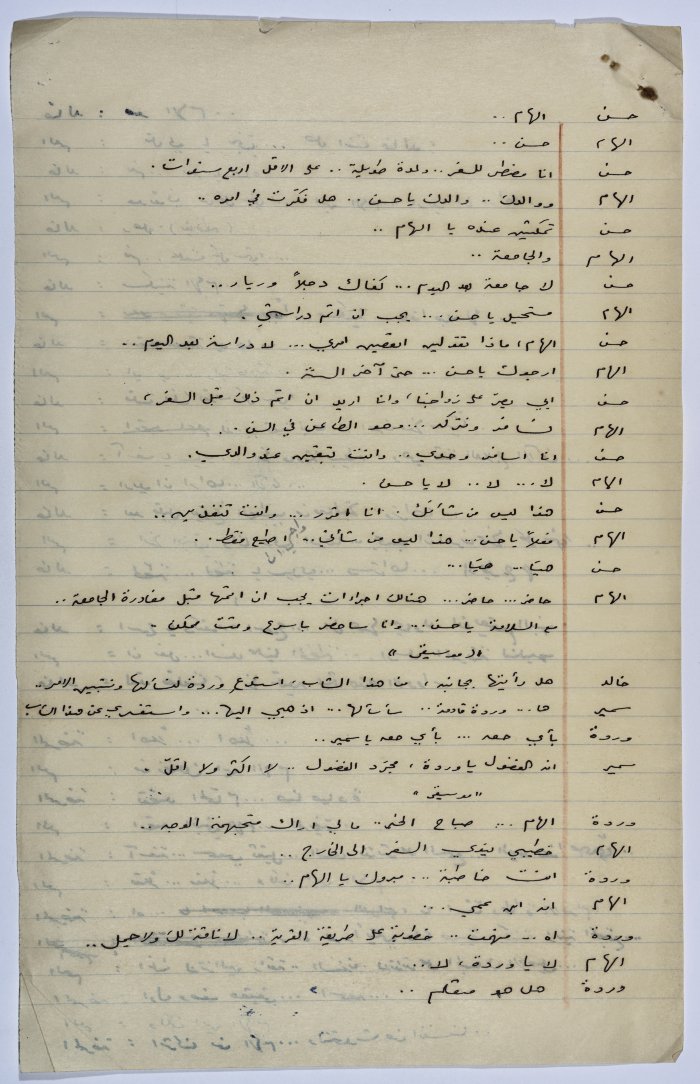 حسن الهام ..
الهام حسن ..
حسن انا مضطر للسفر .. ولمدة طويلة .. على الاقل اربع سنوات .
الهام ووالدك .. والدك يا حسن .. هل فكرت في امره ..
حسن تمكثين عنده يا الهام ..
الهام والجامعة ..
حسن لا جامعة بعد اليوم ... كفاك دجلاً ورياء ..
الهام مستحيل يا حسن ... يجب ان اتم دراستي .
حسن الهام، ماذا تقولين اتعصين امري ... لا دراسة بعد اليوم ..
الهام ارجوك يا حسن ... حتى آخر السنة .
حسن ابي يصر على زواجنا، وانا اريد ان اتم ذلك قبل السفر،
الهام نسافر ونتركه ... وهو الطاعن في السن ..
حسن انا اسافر وحدي .. وانت تبقين عند والدي .
الهام لا ... لا .. لا يا حسن .
حسن هذا ليس من شأنك . انا اقرر .. وانت تنفذين ..
الهام فعلاً يا حسن .. هذا ليس من شأني .. اطيع فقط ..
حسن هيا .. هيا ...
الهام حاضر ... حاضر ... هنالك اجراءات يجب ان اتمها قبل مغادرة الجامعة ..
مع السلامة يا حسن ... وانا ساحضر باسرع وقت ممكن ..
" الموسيقى "
خالد هل رأيتها بجانبه، من هذا الشاب، استدع وردة لنسألها ونتبين الامر ..
سمير ها .. وردة قادمة .. سأسألها ... اذهبي اليها ... واستفسري عن هذا الشاب
وردة بأي صفة ... بأي صفة يا سمير ..
سمير انه الفضول يا وردة، مجرد الفضول .. لا اكثر ولا اقل .
" موسيقى "
وردة الهام ... صباح الخير .. ما لي اراك متجهمة الوجه ..
الهام خطيبي ينوي السفر الى الخارج ..
وردة انت خاطبة .. مبروك يا الهام ..
الهام انه ابن عمي ...
وردة اه .. فهمت .. خطوبة على طريقة القرية .. لا ناقة لك ولا جمل ..
الهام لا يا وردة، لا ..
وردة هل هو متعلم ..